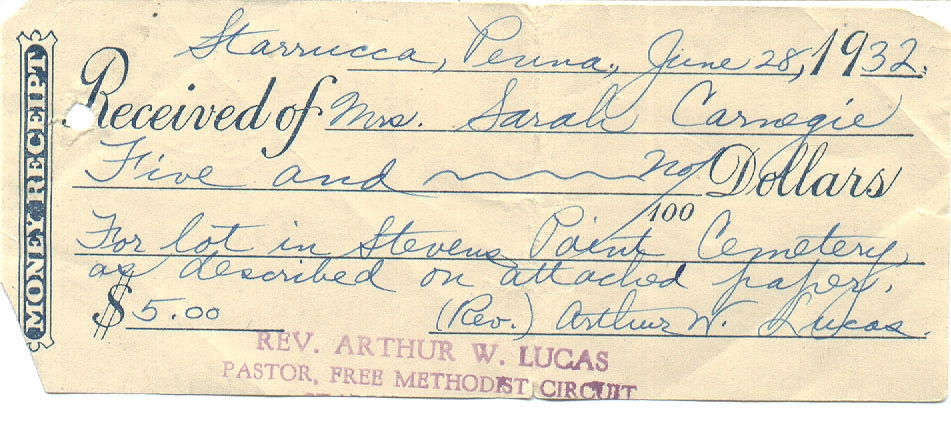 MONEY RECEIPT
Starrucca, Penna., June 28, 1932.
Received of Mrs. Sarah Carnegie
Five and no/100 Dollars
For lot in Stevens Point Cemetery,
as described on attached paper.
$5.00 (Rev.) Arthur W. Lucas.
REV. ARTHUR W. LUCAS
PASTOR, FREE METHODIST CIRCUIT